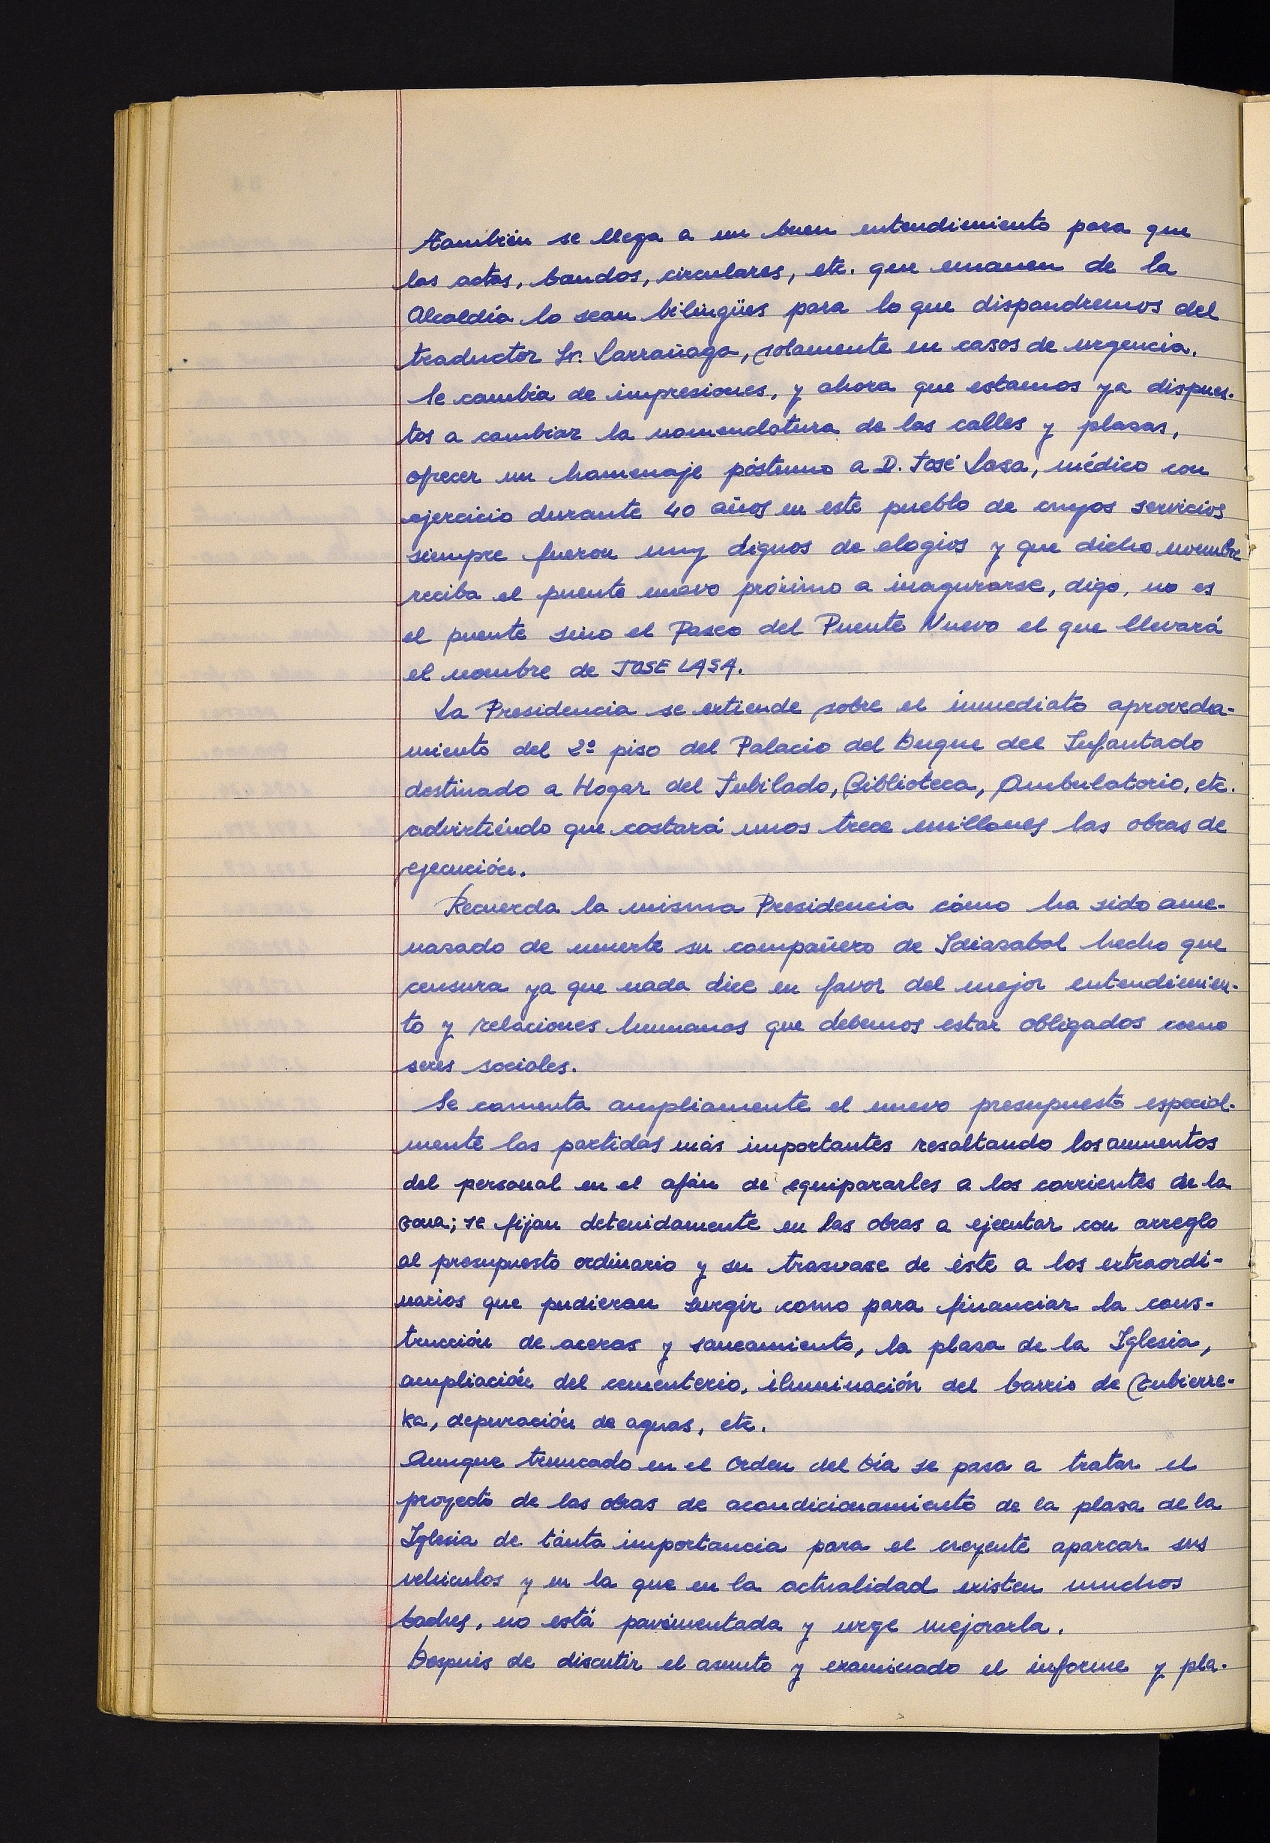 También se llega a un buen entendimiento para que
las actas, bandos, circulares, etc. que emanen de la
Alcaldía lo sean bilingües para lo que dispondremos del
traductor Sr. Larrañaga, solamente en casos de urgencia.
Se cambia de impresiones, y ahora que estamos ya dispues-
tos a cambiar la nomenclatura de las calles y plazas,
ofrecer un homenaje póstumo a D. José Lasa, médico con
ejercicio durante 40 años en este pueblo de cuyos servicios
siempre fueron muy dignos de elogios y que dicho nombre
reciba el puente nuevo próximo a inagurarse, digo, no es
el puente sino el Paseo del Puente Nuevo el que llevará
el nombre de JOSE LASA.
La Presidencia se extiende sobre el inmediato aproveda-
miento del 2º piso del Palacio del Duque del Infantado
destinado a Hogar del Jubilado, Biblioteca, Ambulatorio, etc.
advirtiéndo que costará unos trece millones las obras de
ejecución.
Recuerda la misma Presidencia cómo ha sido ame-
nazado de muerte su compañero de Idiazabal hecho que
censura ya que nada dice en favor del mejor entendimien-
to y relaciones humanas que debemos estar obligados como
seres sociales.
Se comenta ampliamente el nuevo presupuesto especial-
mente las partidas más importantes resaltando los aumentos
del personal en el afán de equipararles a los corrientes de la
zona; se fijan detenidamente en las obras a ejecutar con arreglo
al presupuesto ordinario y su trasvase de éste a los extraordi-
narios que pudieran surgir como para financiar la cons-
trucción de aceras y saneamiento, la plaza de la Iglesia,
ampliación del cementerio, iluminación del barrio de Zubierre-
ka, depuración de aguas, etc.
Aunque truncado en el Orden del Día se pasa a tratar el
proyecto de las obras de acondicionamiento de la plaza de la
Iglesia de tánta importancia para el creyente aparcar sus
vehículos y en la que en la actualidad existen muchos
badres, no está pavimentada y urge mejorarla.
Después de discutir el asunto y examinado el informe y pla-